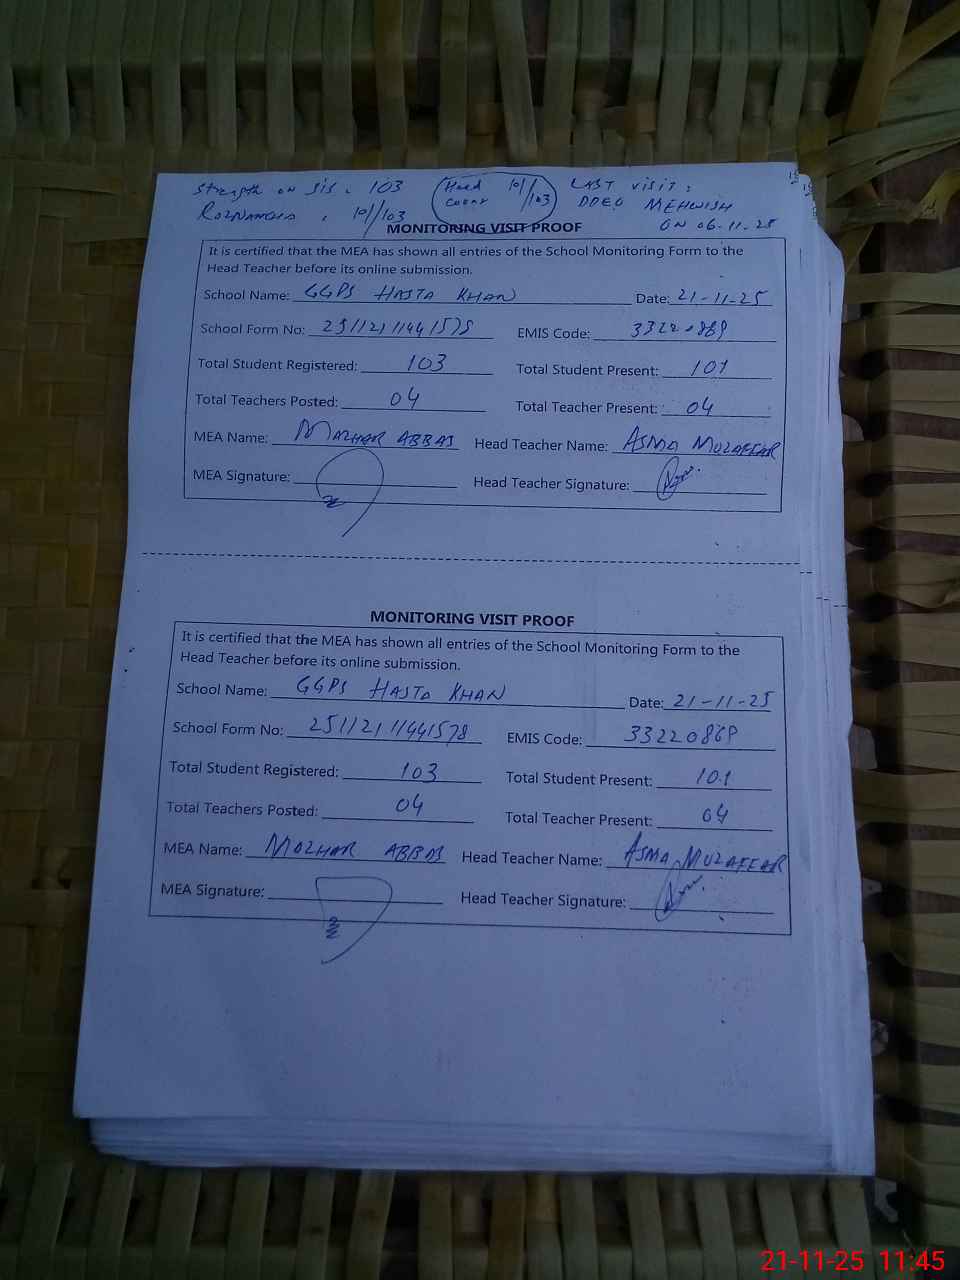 Strength on SIS. 103
Roznamcha. 101/103
Head Count 101/103
LAST VISIT:
DDEO MEHWISH
ON 06-11-25
MONITORING VISIT PROOF
It is certified that the MEA has shown all entries of the School Monitoring Form to the
Head Teacher before its online submission.
School Name: GGPS HASTA KHAN Date: 21-11-25
School Form No: 25112111441578 EMIS Code: 33220869
Total Student Registered: 103 Total Student Present: 101
Total Teachers Posted: 04 Total Teacher Present: 04
MEA Name: MAZHAR ABBAS Head Teacher Name: ASMA MUZAFFAR
MEA Signature: Head Teacher Signature:
MONITORING VISIT PROOF
It is certified that the MEA has shown all entries of the School Monitoring Form to the
Head Teacher before its online submission.
School Name: GGPS HASTA KHAN Date: 21-11-25
School Form No: 25112111441578 EMIS Code: 33220869
Total Student Registered: 103 Total Student Present: 101
Total Teachers Posted: 04 Total Teacher Present: 04
MEA Name: MAZHAR ABBAS Head Teacher Name: ASMA MUZAFFAR
MEA Signature: Head Teacher Signature:
21-11-25 11:45